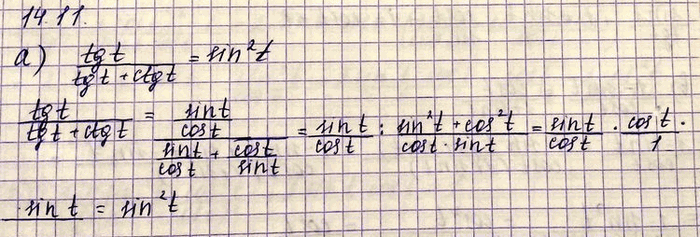 14.11.
a) tg t / (tg t + ctg t) = sin²t
tg t / (tg t + ctg t) = (sin t / cos t) / (sin t / cos t + cos t / sin t) = sin t / cos t : (sin²t + cos²t) / (cos t · sin t) = sin t / cos t · cos t · / 1
· sin t = sin²t